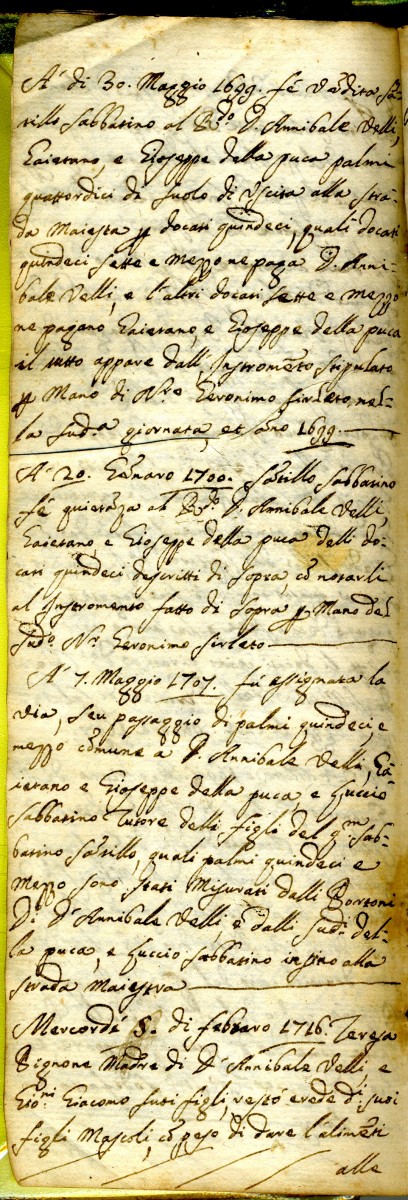 A' di 30. Maggio 1699. fè vēdita Sā-
tillo Sabbatino al R.do D. Annibale Velli,
Gaietano, e Gioseppe della puca palmi
quattordici di suolo di uscita alla stra-
da Maiestra p docati quindeci, quali docati
quindeci sette e mezzo ne paga D. Anni-
bale Velli, e l'altri docati sette e mezzo
ne pagano Gaietano, e Gioseppe della puca
il tutto appare dall'Instromēto stipulato
p Mano di N.re Geronimo Sirleto, nel-
la sud.a giornata, et āno 1699.
A' 20. Gēnaro 1700. Sātillo Sabbatino
fè quietāza al R.do D. Annibale Velli,
Gaietano, e Gioseppe della puca delli do-
cati quindeci descritti di sopra, cō notarli
al Instromento fatto di sopra p Mano del
sud.o N.re Geronimo Sirleto
A' 7. Maggio 1707. fù assignata la
via, seu passaggio di palmi quindeci, e
mezzo cōmune à D. Annibale Velli, Ga-
ietano e Gioseppe della puca, e Luccio
Sabbatino Tutore delli figli del q.m Sab-
batino Sātillo, quali palmi quindeci e
Mezzo sono stati Misurati dalli Portoni
Di D. Annibale Velli e dalli sud.i del-
la puca, e Luccio Sabbatino insino alla
strada Maiestra
Mercordì 5. di febraro 1716. Teresa
Pignone Madre di D. Annibale Velli, e
Gio: Giacomo suoi figli, restò erede di suoi
figli Mascoli, cō peso di dare l'alimēti
alle